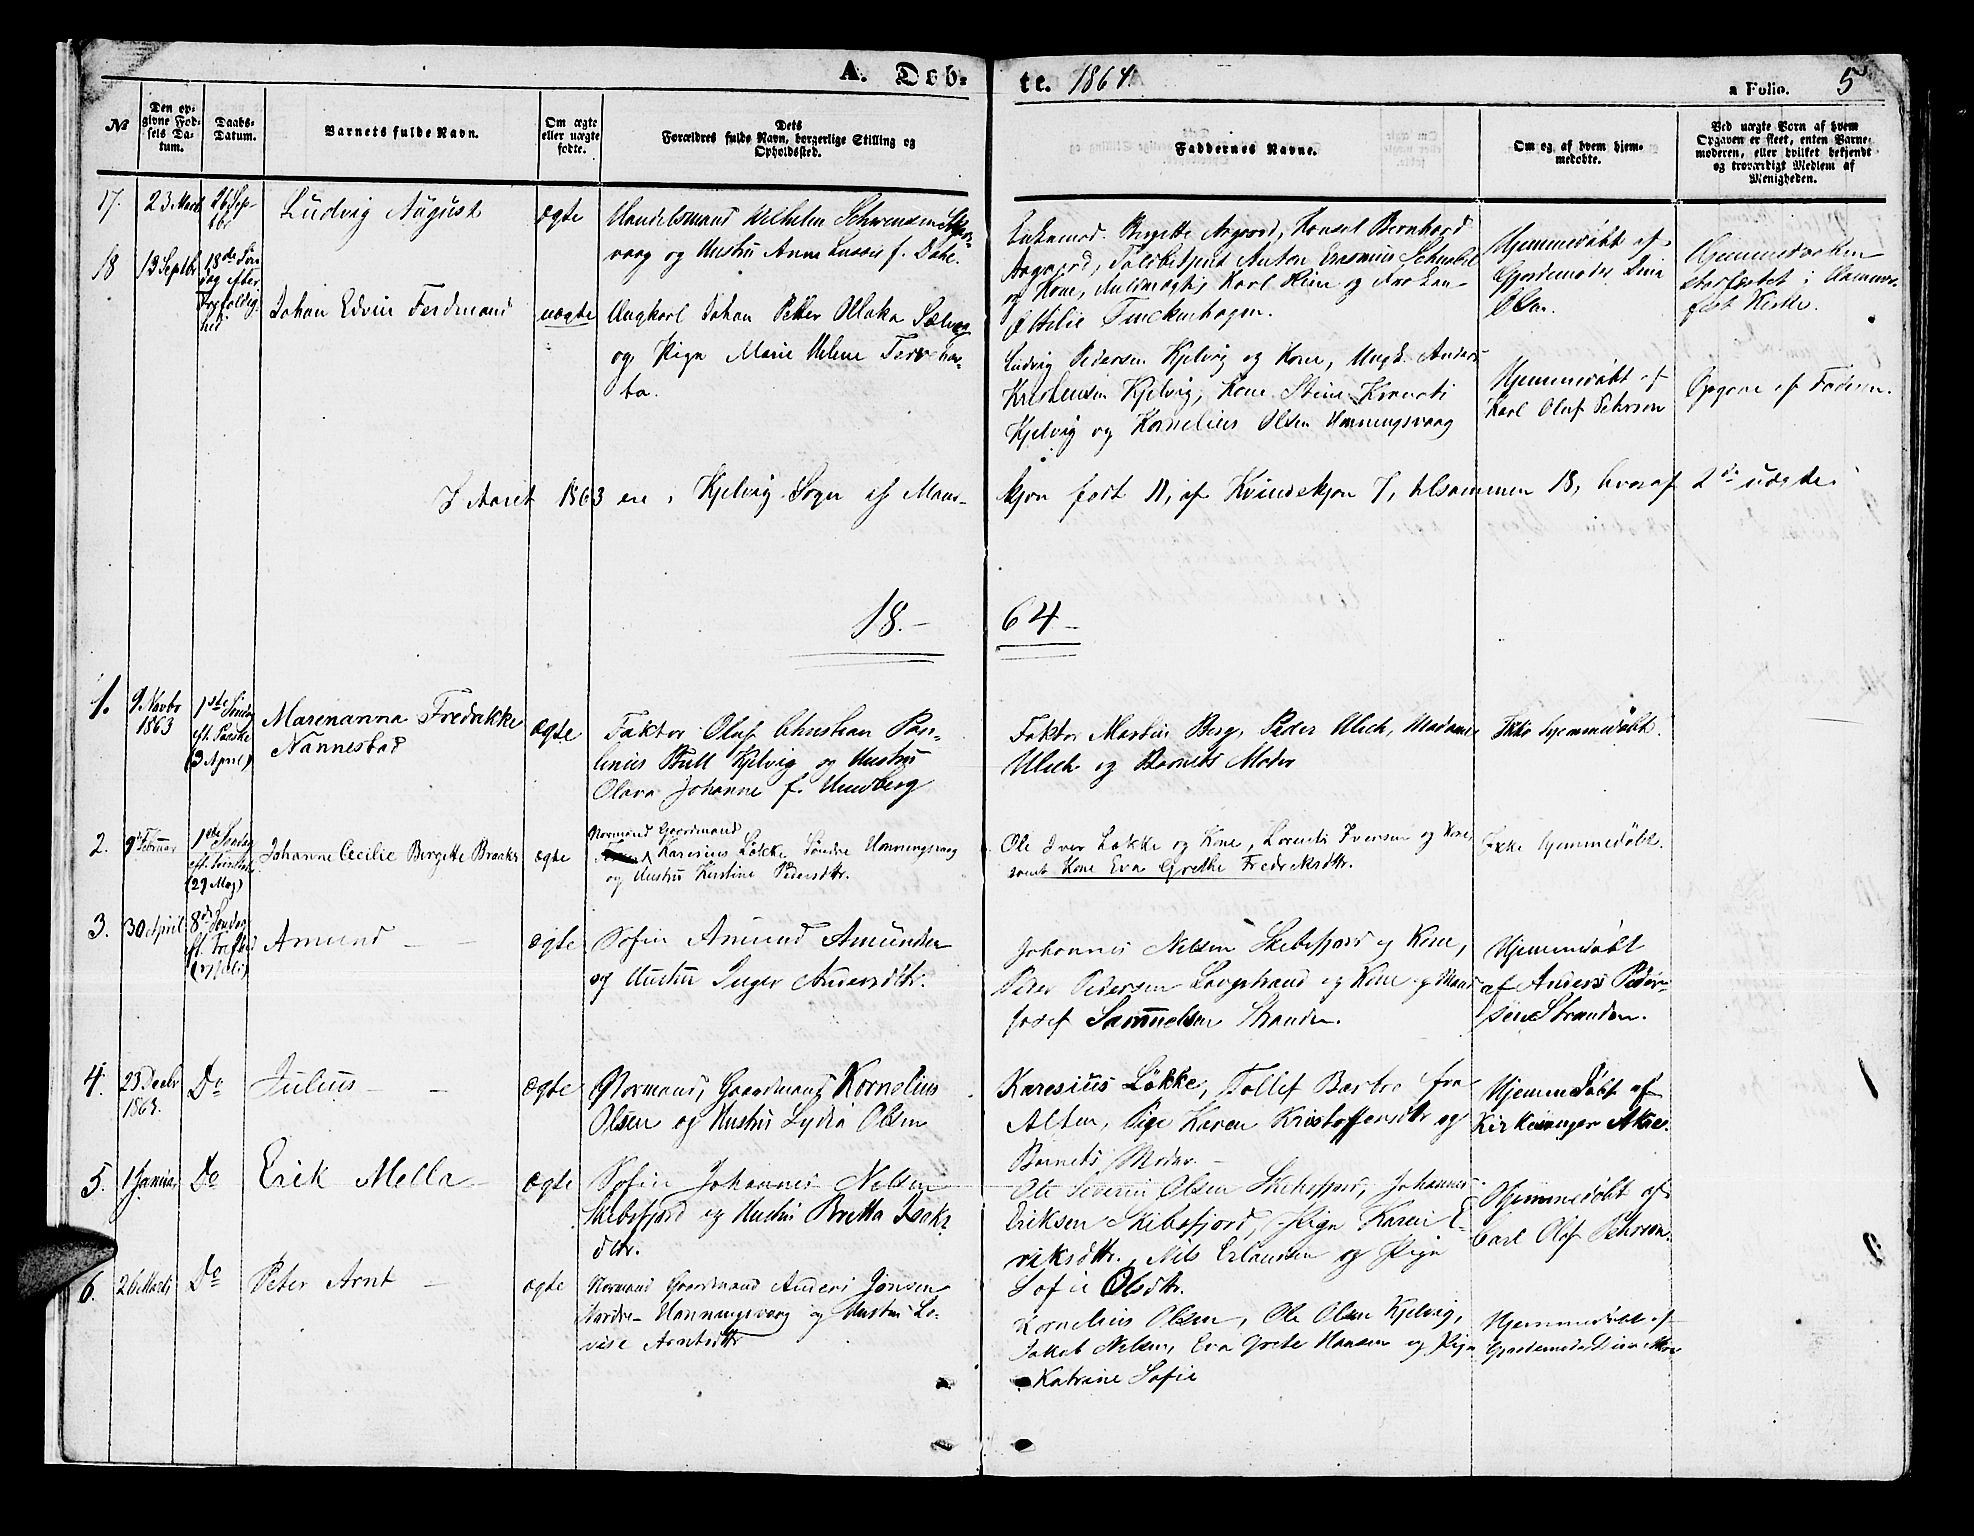 A. Døb- te. 1864.
a Folio. 5
№
Den opgivne Fødsels Datum.
Daabs-Datum.
Barnets fulde Navn.
Om ægte eller uægte fødte.
Dets Forældres fulde Navn, borgerlige Stilling og Opholdssted.
Faddernes Navne.
Om og af hvem hjemmedøbte.
Ved uægte Børn af hvem Opgaven er skeet, enten Barnemoderen, eller hvilket bekjendt og troværdigt Medlem af Menigheden.
17. 23 Marts 26 Septbr Ludvig August ægte
Handelsmand Wilhelm
vaag og Hustru Anne f. Dahl.
Birgitte Aagaard, Konsul Bernhard
Aagaard, Toldbetjent Anton Erasmus
og Kone, Karl og
Finckenhagen.
Hjemmedøbt af
Gjordemoder Dina
Olsen.
Hjemmedaaben
stadfæstet i Hammer-
fest Kirke.
18 13 Septbr 18de Søn-
dag efter
Trefoldig-
hed
Johan Edvin Ferdinand uægte
Ungkarl Johan Petter
og Pige Marie Helene
Ludvig Pedersen Kjelvig og Kone, Ungk. Anders
Kristensen Kjelvig, Kone Stine
Kjelvig og Kornelius Olsen Honningsvaag
Hjemmedøbt af
Karl Oluf Pehrson
Opgave af Faderen.
I Aaret 1863 ere i Kjelvig Sogn af Mand-
kjøn født 11, af Kvindekjøn 7, tilsammen 18, hvoraf 2de uægte.
18.- 64-
1. 9. Novbr
1863
1ste Søndag
eft. Paaske
(3 April)
Marenanna Fredrikke
Nannestad
ægte
Faktor Oluf Christian Pau-
linius Bull Kjelvig og Hustru
Olava Johanne f. Hundberg
Faktor Martin Berg, Peder Ulich, Madame
Ulich og Barnets Moder
Ikke hjemmedøbt.
2. 9de Februar 1ste Søndag
(29 Maj)
Johanne Cecilie Bergitte ægte
Normand Gaardmand
Karesius Løkke Søndre Honningsvaag
og Hustru Kirstine Pedersdtr.
Ole Iver Løkke og Kone, Lorents Iversen og Kone
samt Kone Eva Grethe Fredriksdtr.
Ikke hjemmedøbt.
3. 30 April 8de Søndag
eft. Trefold
Amund - -
ægte
Sofin Amund Amundsen
og Hustru Inger Andersdtr.
Johannes Nilsen Skibsfjord og Kone,
Peder Pedersen og Kone og Mand
Josef Sammelsen Stranden.
Hjemmedøbt
af Anders Peder-
sen Stranden.
4. 23 Decbr
1863.
Do Julius - -
ægte
Normand, Gaardmand Kornelius
Olsen og Hustru Lydia Olsen
Karesius Løkke, Tollef Barbro fra
Alten, Pige Karen Kristoffersdtr og
Barnets Moder. -
Hjemmedøbt af
Kirkesanger
5. 1 Januar Do Erik Mella -
ægte
Sofin Johannes Nilsen
Skibsfjord og Hustru Britta Isaks
dtr.
Ole Severin Olsen Skibsfjord, Johannes
Eriksen Skibsfjord, Pige Karen E-
riksdtr, Nils Erlandsen og Pige
Sofie Olsdtr.
Hjemmedøbt af
Carl Olof Pehrson.
6. 26 Marts Do Peter Arnt -
ægte
Normand Gaardmand Anders Jonsen
Nordre-Honningsvaag og Hustru Lo-
vise Arntsdtr
Kornelius Olsen, Ole Olsen Kjelvig,
Jakob Nilsen, Eva Grete Hansen og Pige
Katrine Sofie
Hjemmedøbt af